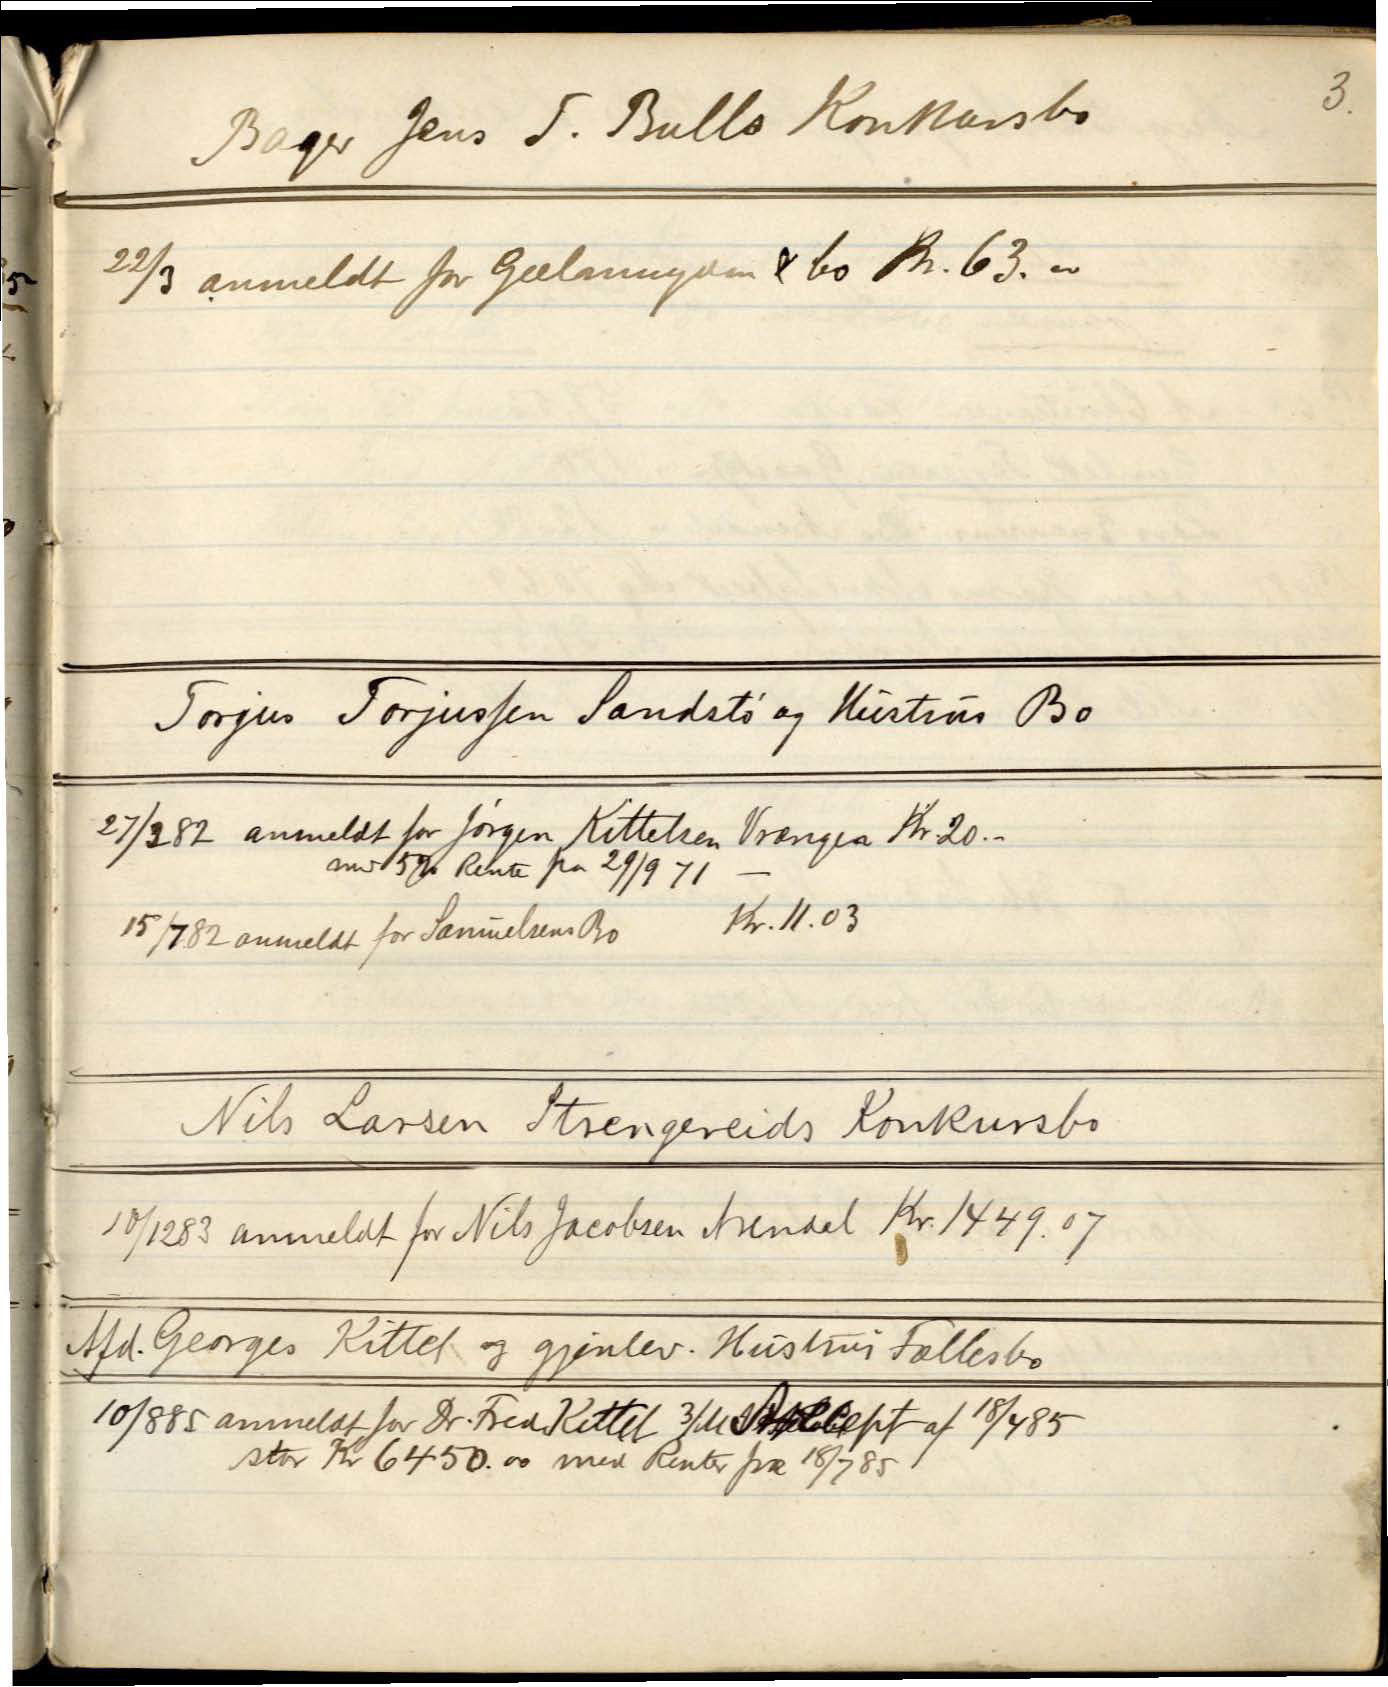 3.
Bager Jens T. Bulls Konkursbo
22/3 anmeldt for & Co Kr. 63. "
Torjus Torjussen Sandstö og Hustrus Bo
27/3 82 anmeldt for Jörgen Kittelsen Vrængen Kr. 20.-
med 5% Rente fra 29/9 71 —
15/7 82 anmeldt for Samuelsens Bo Kr. 11.03
Nils Larsen Strengereids Konkursbo
10/12 83 anmeldt for Nils Jacobsen Arendal Kr. 1449.07
Afd. Georges Kittel og gjenlev. Hustrus Fællesbo
10/8 85 anmeldt for Dr. Fred. Kittel 3/m af 18/4 85
stor Kr 6450. oo med Renter fra 18/7 85